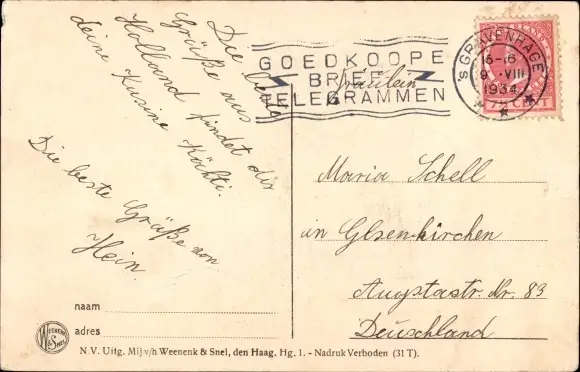 Die beste
Grüße aus
Holland findet dir
deine Kusine Köchti.
Die beste Grüße von
Hein.
GOEDKOOPE
BRIEF
TELEGRAMMEN
'S GRAVENHAGE
16-16
9 VIII
1934
NEDERLAND
7½ CENT
Fräulein
Maria Schell
in Glsenkirchen
Augstastr. Nr. 83
Deuschland
naam
adres
WEENENK & SNEL
N.V. Uitg. Mij v/h Weenenk & Snel, den Haag. Hg. 1. - Nadruk Verboden (31 T).